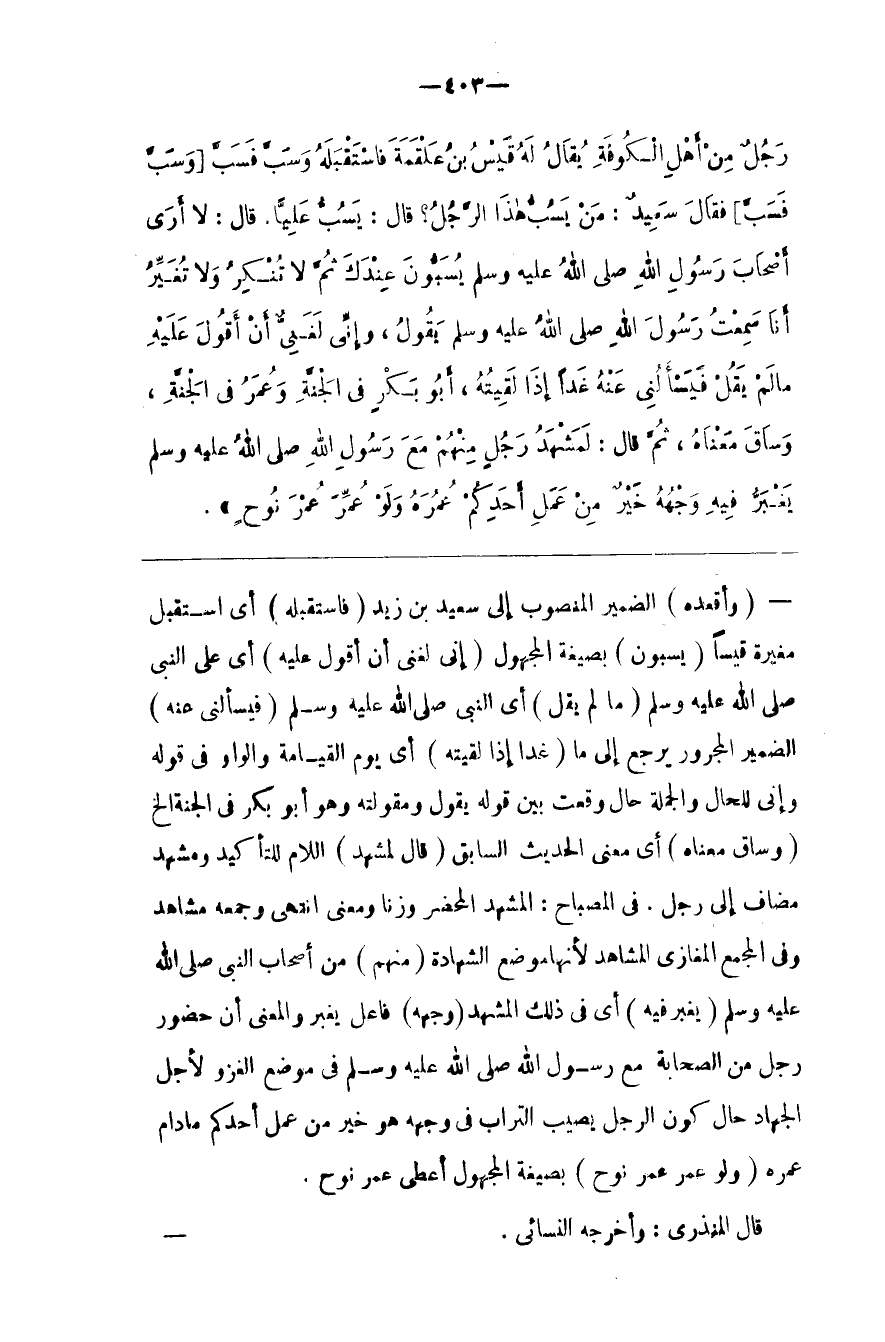 —٤٠٣—
رَجُلٌ مِنْ أَهْلِ الْكُوفَةِ يُقَالُ لَهُ قَيْسُ بنُ عَلْقَمَةَ فَاسْتَقْبَلَهُ وَسَبَّ فَسَبَّ [ وَسَبَّ
فَسَبَّ ] فقَالَ سَعِيدٌ : مَنْ يَسُبُّ هٰذَا الرَّجُلُ؟ قال : يَسُبُّ عَلِيًّا . قال : لا أَرَى
أَصْحَابَ رَسُولِ اللهِ صلى اللهُ عليه وسلم يُسَبُّونَ عِنْدَكَ ثُمَّ لا تُنْكِرُ وَلا تُغَيِّرُ
أَنَا سَمِعْتُ رَسُولَ اللهِ صلى اللهُ عليه وسلم يَقُولُ ، وإِنِّى لَغَنِىٌّ أَنْ أَقُولَ عَلَيْهِ
مالَمْ يَقُلْ فَيَسْأَلُنِى عَنْهُ غَداً إِذَا لَقِيتُهُ ، أَبُو بَكْرٍ فى الْجَنَّةِ وَعُمَرُ فى الْجَنَّةِ ،
وَسَاقَ مَعْنَاهُ ، ثُمَّ قال : لَمَشْهَدُ رَجُلٍ مِنْهُمْ مَعَ رَسُولِ اللهِ صلى اللهُ عليه وسلم
يَغْبَرُّ فِيهِ وَجْهُهُ خَيْرٌ مِنْ عَمَلِ أَحَدِكُمْ عُمُرَهُ وَلَوْ عُمِّرَ عُمْرَ نُوحٍ » .
— ( وأقعده ) الضمير المنصوب إلى سعيد بن زيد ( فاستقبله ) أى استقبل
مغيرة قيساً ( يسبون ) بصيغة المجهول ( إنى لغنى أن أقول عليه ) أى على النبى
صلى الله عليه وسلم ( ما لم يقل ) أى النبى صلى الله عليه وسلم ( فيسألنى عنه )
الضمير المجرور يرجع إلى ما ( غدا إذا لقيته ) أى يوم القيامة والواو فى قوله
وإنى للحال والجملة حال وقعت بين قوله يقول ومقولته وهو أبو بكر فى الجنة الخ
( وساق معناه ) أى معنى الحديث السابق ( قال لمشهد ) اللام للتأكيد ومشهد
مضاف إلى رجل . فى المصباح : المشهد المحضر وزنا ومعنى انتهى وجمعه مشاهد
وفى المجمع المغازى المشاهد لأنها موضع الشهادة ( منهم ) من أصحاب النبى صلى الله
عليه وسلم ( يغبر فيه ) أى فى ذلك المشهد (وجهه) فاعل يغبر والمعنى أن حضور
رجل من الصحابة مع رسول الله صلى الله عليه وسلم فى موضع الغزو لأجل
الجهاد حال كون الرجل يصيب التراب فى وجهه هو خير من عمل أحدكم مادام
عمره ( ولو عمر عمر نوح ) بصيغة المجهول أعطى عمر نوح .
قال المنذرى : وأخرجه النسائى . —